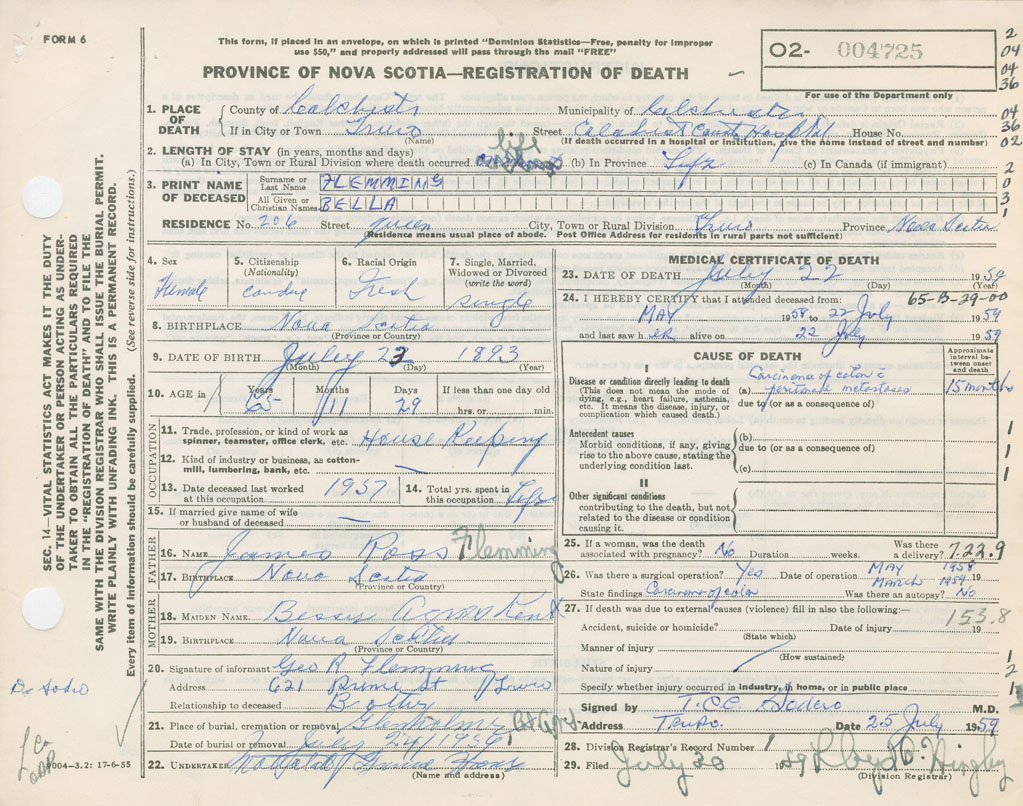 FORM 6
This form, if placed in an envelope, on which is printed "Dominion Statistics—Free, penalty for improper
use $50," and properly addressed will pass through the mail "FREE"
PROVINCE OF NOVA SCOTIA—REGISTRATION OF DEATH
02- 004725
For use of the Department only
2
04
04
36
04
36
02
2
0
3
1
1. PLACE OF DEATH
County of Colchester Municipality of Colchester
If in City or Town Truro Street Colchester County Hospital House No.
(Name) (If death occurred in a hospital or institution, give the name instead of street and number)
2. LENGTH OF STAY (in years, months and days)
(a) In City, Town or Rural Division where death occurred Life (b) In Province Life (c) In Canada (if immigrant)
3. PRINT NAME OF DECEASED
Surname or Last Name FLEMMING
All Given or Christian Names BELLA
RESIDENCE No. 206 Street Queen City, Town or Rural Division Truro Province Nova Scotia
(Residence means usual place of abode. Post Office Address for residents in rural parts not sufficient)
4. Sex Female
5. Citizenship (Nationality)
6. Racial Origin
7. Single, Married, Widowed or Divorced (write the word) single
8. BIRTHPLACE Nova Scotia
(Province or Country)
9. DATE OF BIRTH July 23 1893
(Month) (Day) (Year)
10. AGE in Years 65 Months 11 Days 29 If less than one day old
hrs. or min.
OCCUPATION
11. Trade, profession, or kind of work as spinner, teamster, office clerk, etc. House Keeping
12. Kind of industry or business, as cotton-mill, lumbering, bank, etc. —
13. Date deceased last worked at this occupation 1957
14. Total yrs. spent in this occupation Life
15. If married give name of wife or husband of deceased —
FATHER
16. NAME James Ross Flemming
17. BIRTHPLACE Nova Scotia
(Province or Country)
MOTHER
18. MAIDEN NAME. Bessie Agnes Kent
19. BIRTHPLACE Nova Scotia
(Province or Country)
20. Signature of informant Geo R Flemming
Address 621 Prince St Truro
Relationship to deceased Brother
21. Place of burial, cremation or removal Glenholme, Col. Co. N.S
Date of burial or removal July 24/1959
22. UNDERTAKER
(Name and address)
MEDICAL CERTIFICATE OF DEATH
23. DATE OF DEATH July 22 1959
(Month) (Day) (Year)
24. I HEREBY CERTIFY that I attended deceased from: 65-B-29-00
MAY 1958 to 22 July 1959
and last saw her alive on 22 July 1959
CAUSE OF DEATH
Approximate interval between onset and death
I
Disease or condition directly leading to death
(This does not mean the mode of dying, e.g., heart failure, asthenia, etc. It means the disease, injury, or complication which caused death.)
(a) Carcinoma of colon c peritoneal metastases 15 months
due to (or as a consequence of)
Antecedent causes
Morbid conditions, if any, giving rise to the above cause, stating the underlying condition last.
(b)
due to (or as a consequence of)
(c)
1
1
1
II
Other significant conditions
contributing to the death, but not related to the disease or condition causing it.
25. If a woman, was the death associated with pregnancy? No Duration weeks. Was there a delivery? 7.22.9
26. Was there a surgical operation? Yes Date of operation MAY 1958 MARCH 1959 19
State findings Carcinoma of colon Was there an autopsy? No
27. If death was due to external causes (violence) fill in also the following:— 153.8
Accident, suicide or homicide? Date of injury 19
(State which)
Manner of injury
(How sustained)
Nature of injury
1
2
Specify whether injury occurred in industry, in home, or in public place
1
Signed by T.C.C. Sodero M.D.
Address Truro. Date 25 July 1959
28. Division Registrar's Record Number 129
29. Filed July 30 1959
(Division Registrar)
SEC. 14—VITAL STATISTICS ACT MAKES IT THE DUTY
OF THE UNDERTAKER OR PERSON ACTING AS UNDER-
TAKER TO OBTAIN ALL THE PARTICULARS REQUIRED
IN THE "REGISTRATION OF DEATH" AND TO FILE THE
SAME WITH THE DIVISION REGISTRAR WHO SHALL ISSUE THE BURIAL PERMIT.
WRITE PLAINLY WITH UNFADING INK. THIS IS A PERMANENT RECORD.
Every item of information should be carefully supplied. (See reverse side for instructions.)
Dr Sodero
004—3.2: 17-6-55